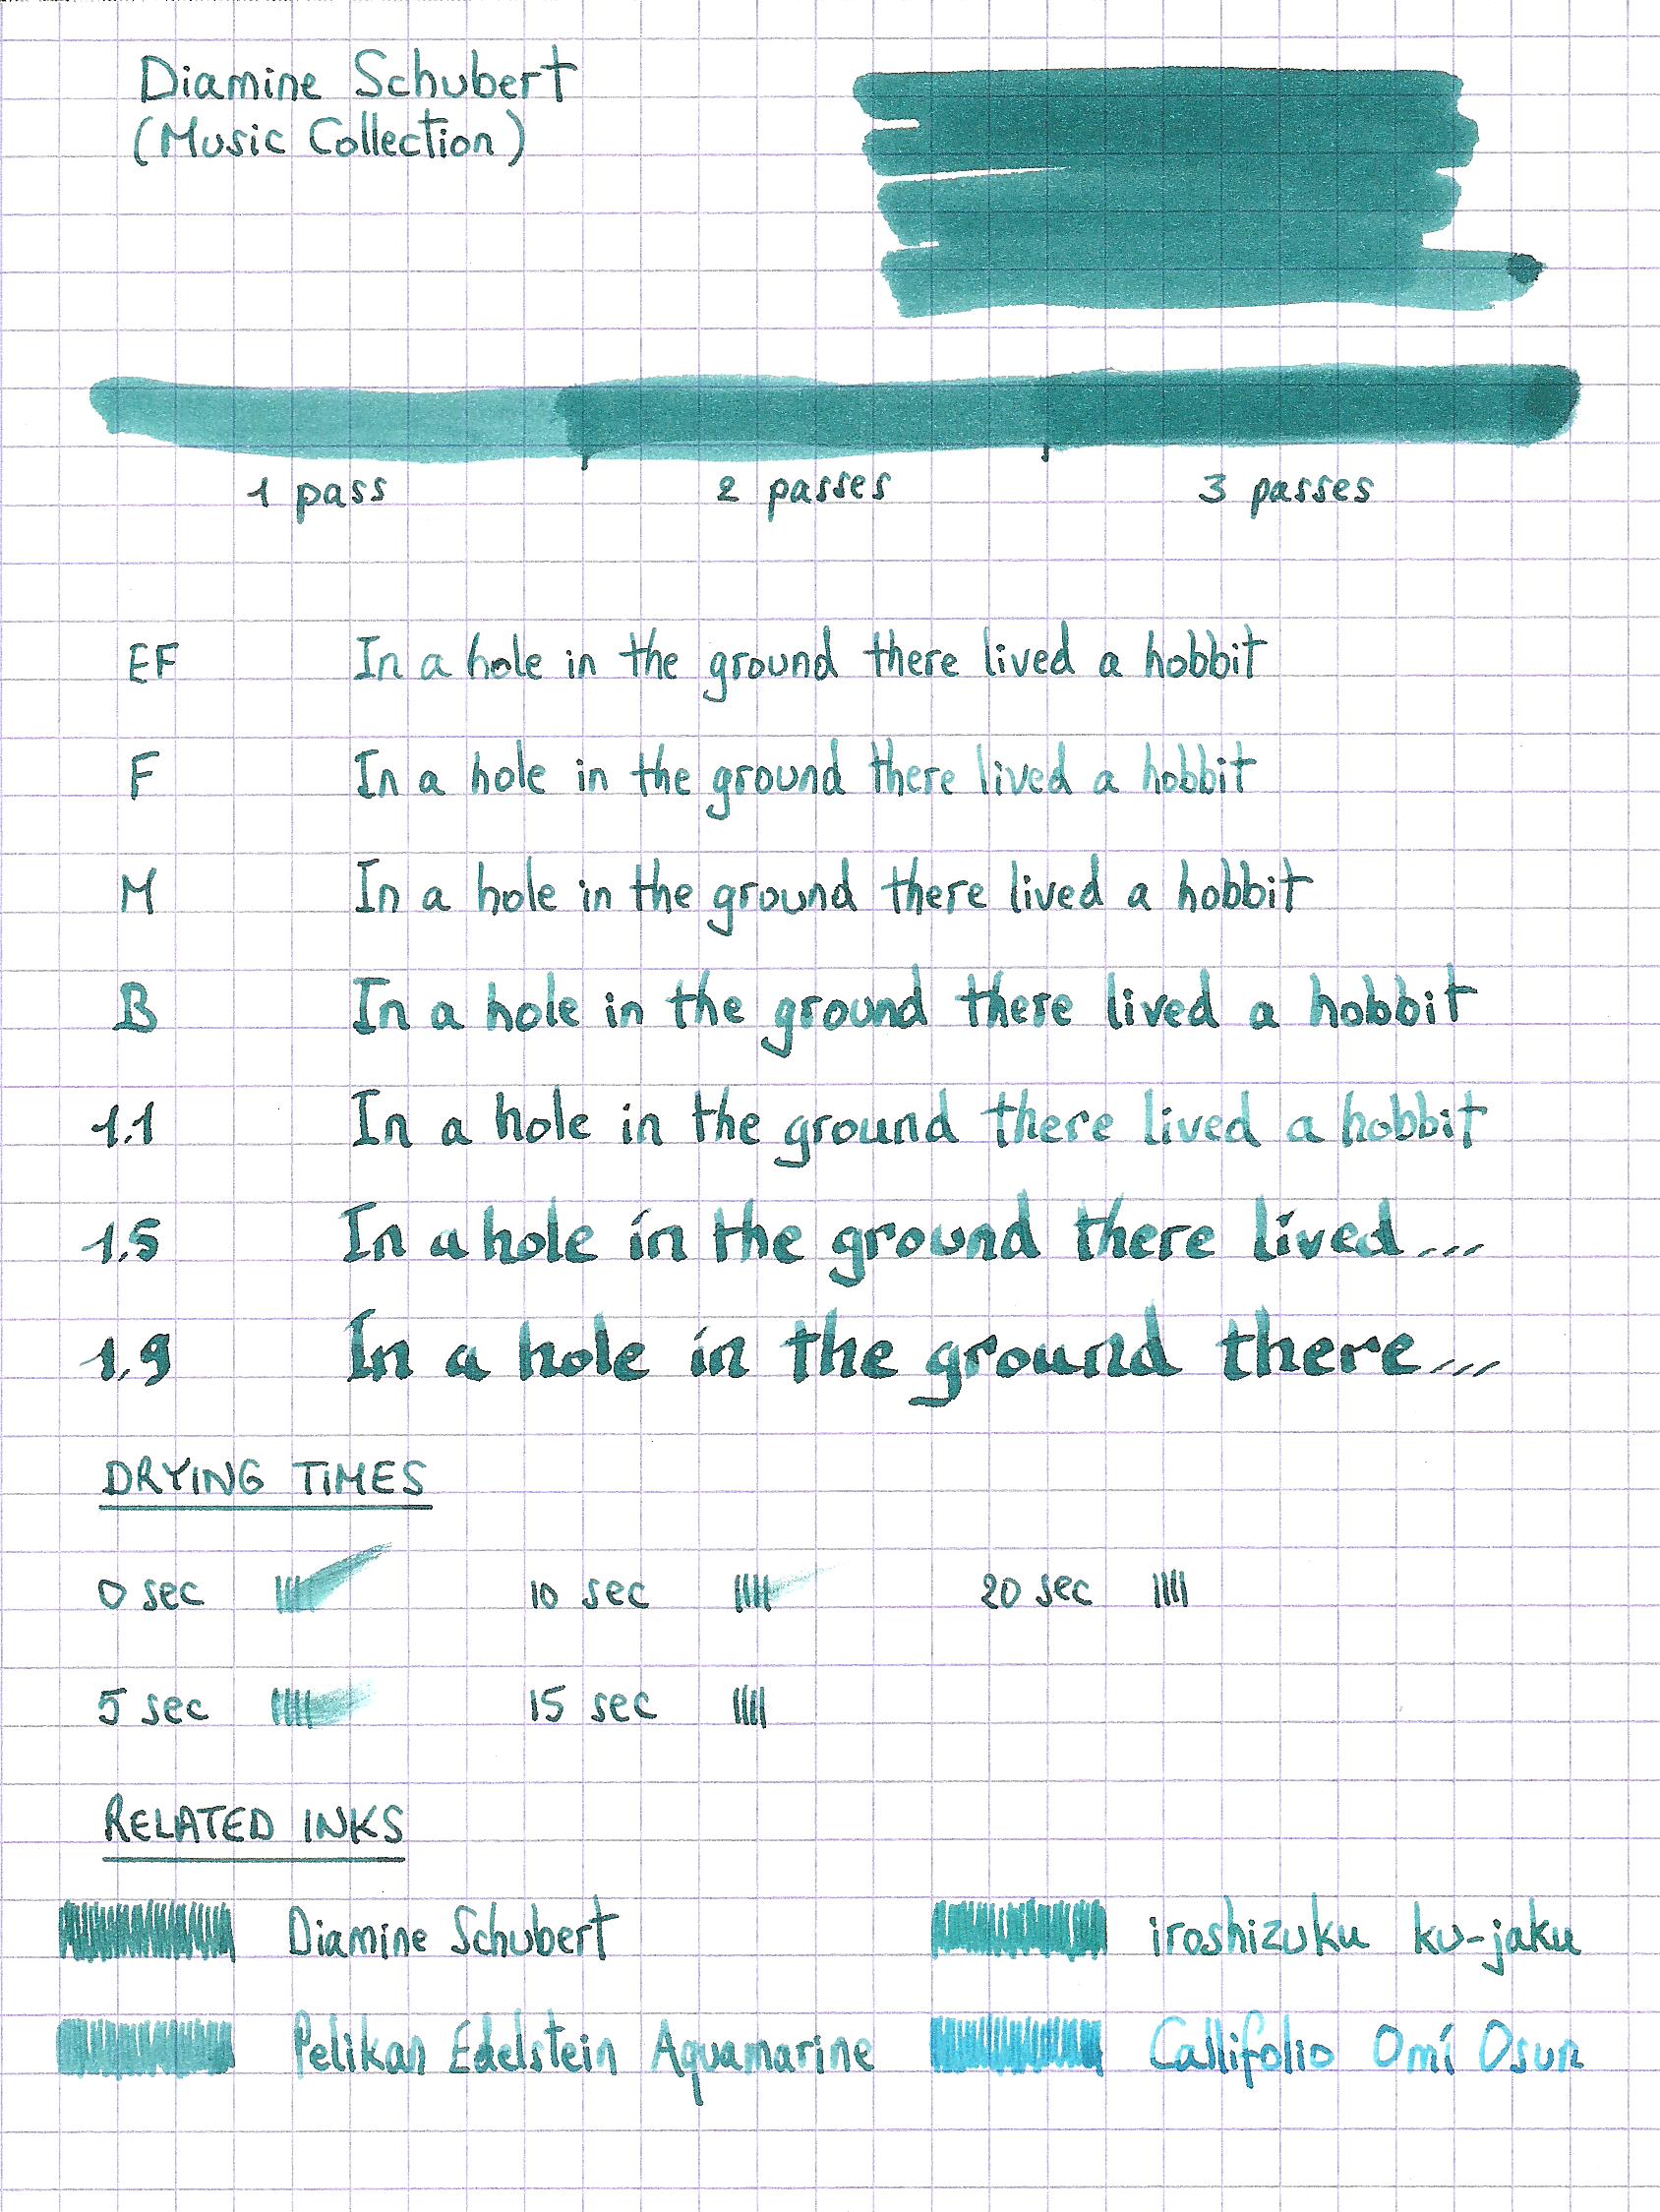 Diamine Schubert
(Music Collection)
1 pass 2 passes 3 passes
EF In a hole in the ground there lived a hobbit
F In a hole in the ground there lived a hobbit
M In a hole in the ground there lived a hobbit
B In a hole in the ground there lived a hobbit
1.1 In a hole in the ground there lived a hobbit
1.5 In a hole in the ground there lived...
1.9 In a hole in the ground there...
DRYING TIMES
0 sec 10 sec 20 sec
5 sec 15 sec
RELATED INKS
Diamine Schubert iroshizuku ku-jaku
Pelikan Edelstein Aquamarine Callifolio Omí Osun